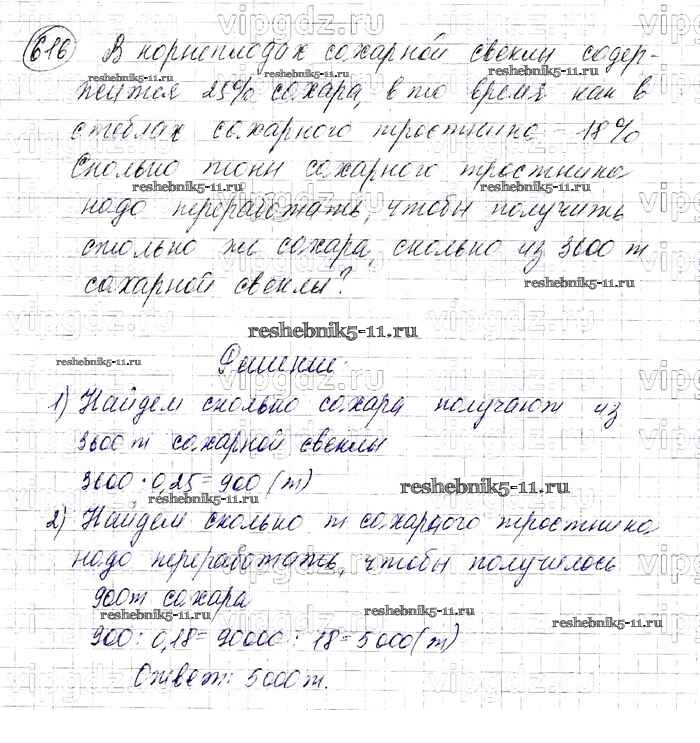 616 В корнеплодах сахарной свеклы содер-
жится 25% сахара, в то время как в
стеблях сахарного тростника - 18%
Сколько тонн сахарного тростника
надо переработать, чтобы получить
столько же сахара, сколько из 3600 т
сахарной свеклы?
reshebnik5-11.ru
Решение.
1) Найдем сколько сахара получают из
3600 т сахарной свеклы
3600 · 0,25 = 900 (т)
reshebnik5-11.ru
2) Найдем сколько т сахарного тростника
надо переработать, чтобы получилось
900т сахара
reshebnik5-11.ru
900 : 0,18 = 90000 : 18 = 5000 (т)
Ответ: 5000 т.
vipgdz.ru